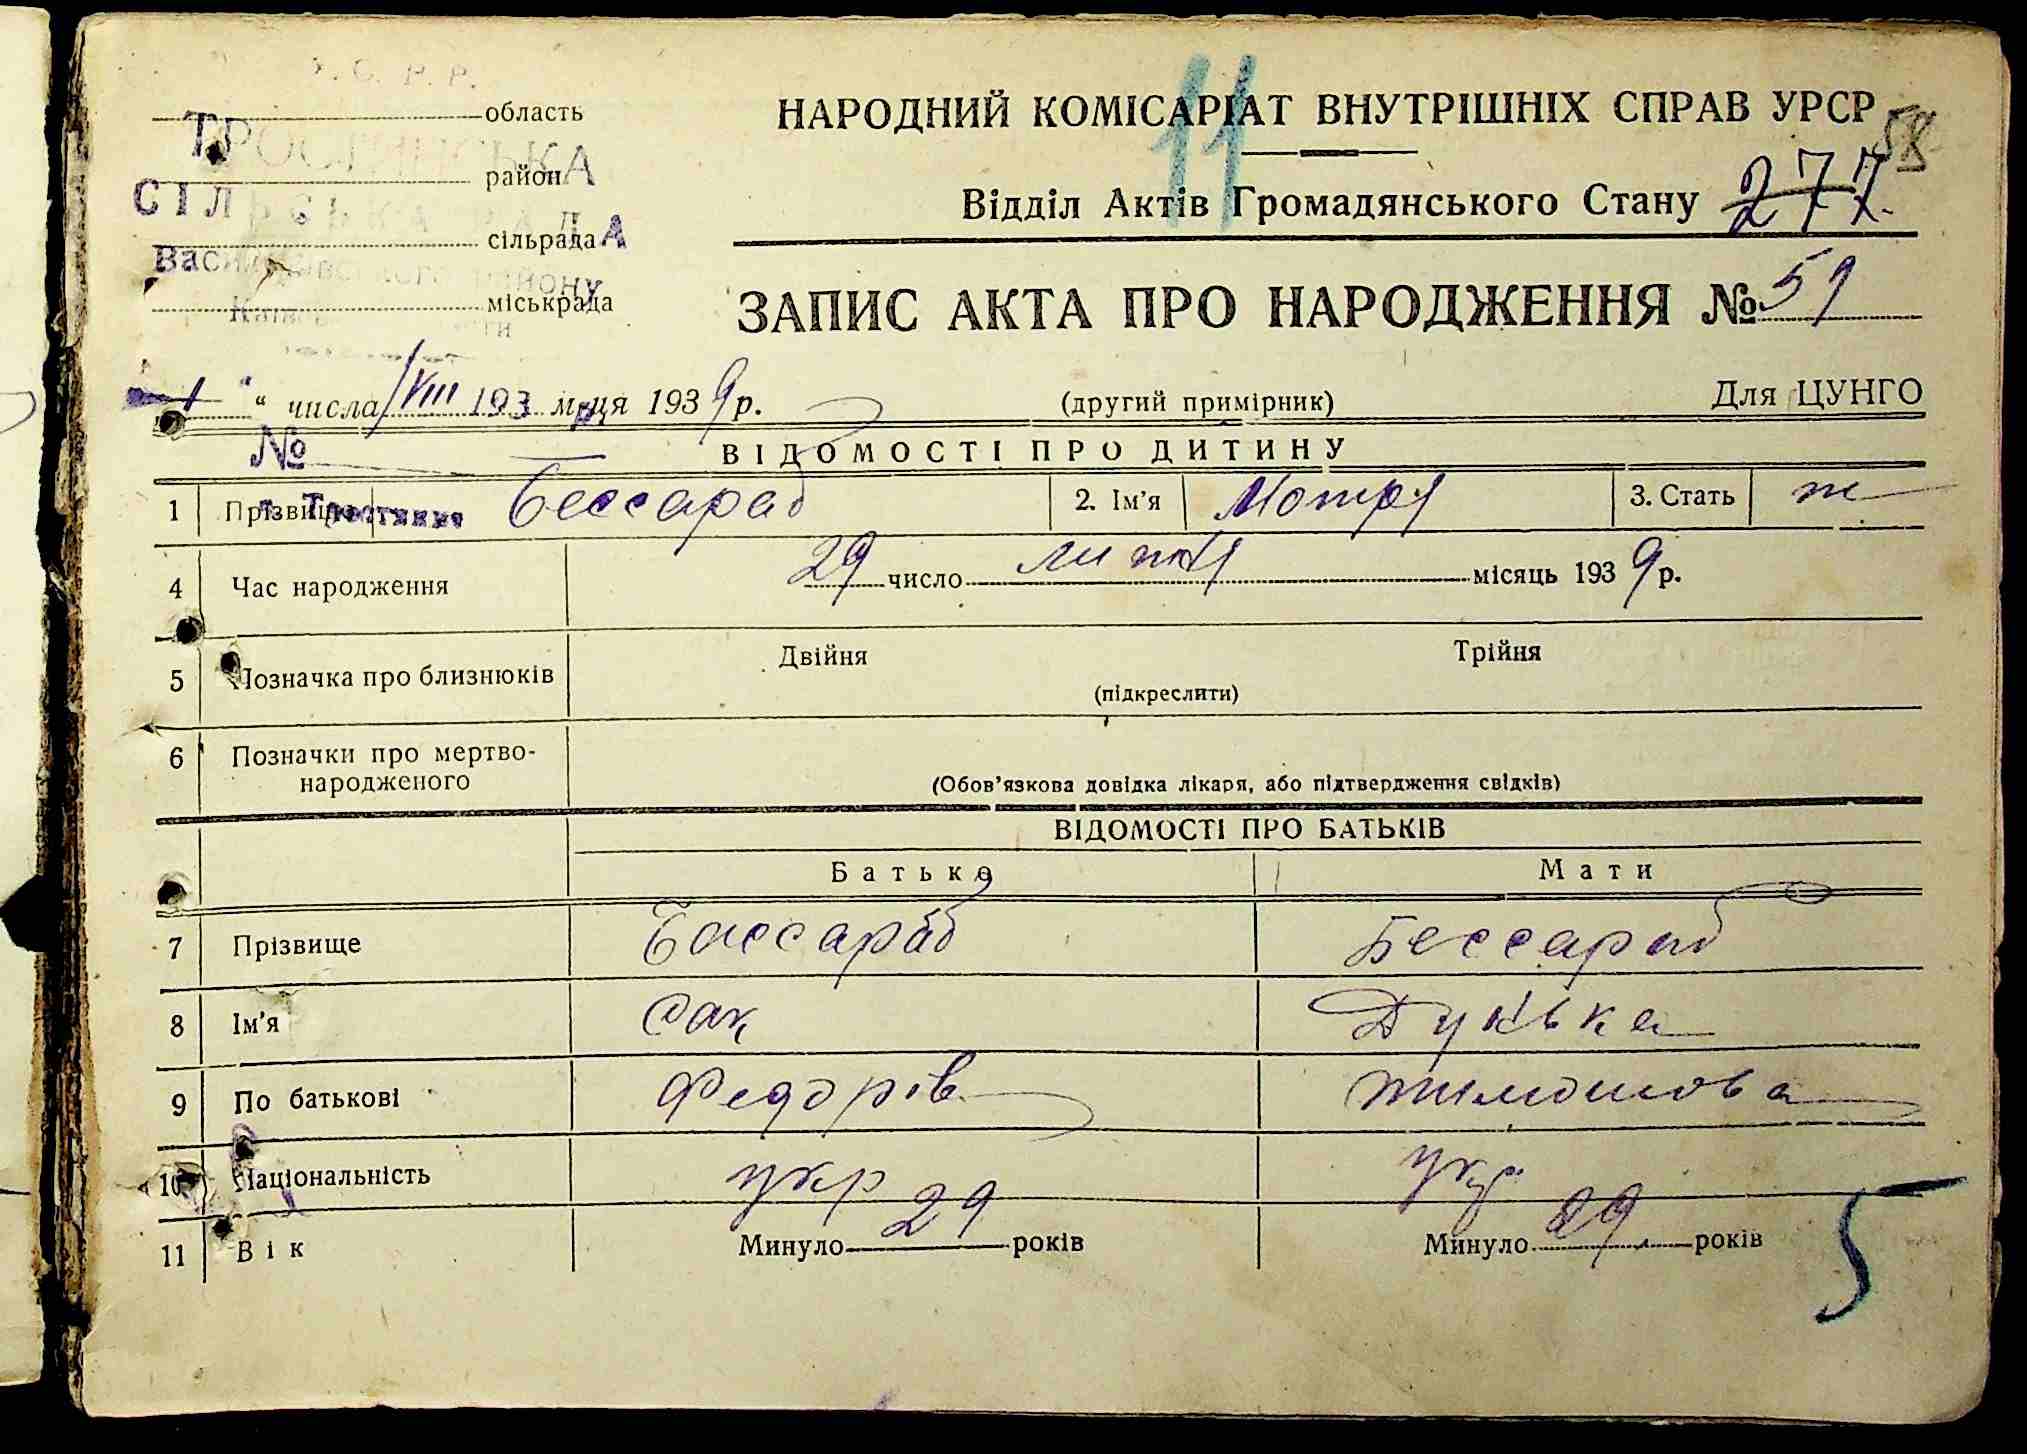 У. С. Р. Р.
область
ТРОСТИНСЬКА
район
СІЛЬСЬКА РАДА
сільрада
Васильківського району
міськрада
НАРОДНИЙ КОМІСАРІАТ ВНУТРІШНІХ СПРАВ УРСР
11
58
Відділ Актів Громадянського Стану 277
ЗАПИС АКТА ПРО НАРОДЖЕННЯ № 59
1 " числа VIII 193 м-ця 1939 р.
(другий примірник)
Для ЦУНГО
№
ВІДОМОСТІ ПРО ДИТИНУ
1 Прізвище Бессараб 2. Ім'я Мотря 3. Стать ж
4 Час народження 29 число липня місяць 1939 р.
5 Позначка про близнюків Двійня Трійня
(підкреслити)
6 Позначки про мертво-
народженого
(Обов'язкова довідка лікаря, або підтвердження свідків)
ВІДОМОСТІ ПРО БАТЬКІВ
Батько Мати
7 Прізвище Бессараб Бессараб
8 Ім'я Сак Дунька
9 По батькові Федорів Тимошова
10 Національність укр укр
11 Вік Минуло 29 років Минуло 29 років
5